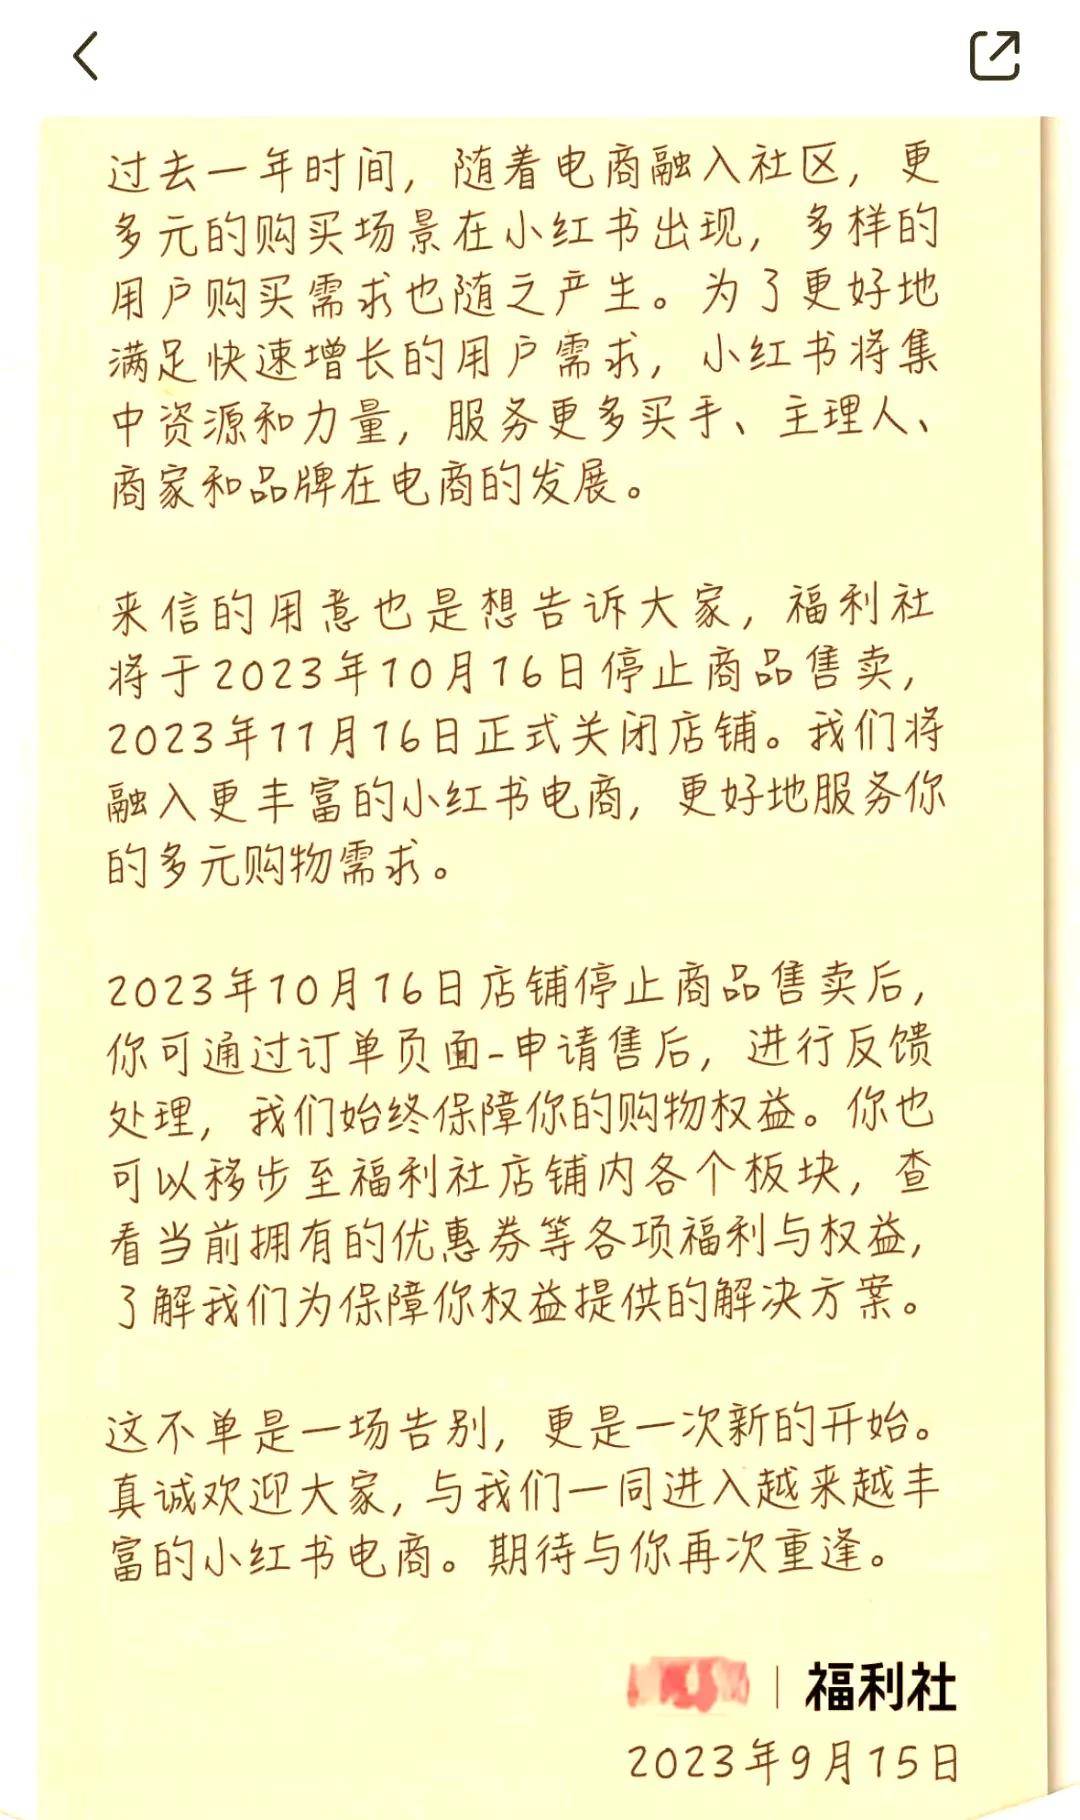 过去一年时间，随着电商融入社区，更
多元的购买场景在小红书出现，多样的
用户购买需求也随之产生。为了更好地
满足快速增长的用户需求，小红书将集
中资源和力量，服务更多买手、主理人、
商家和品牌在电商的发展。
来信的用意也是想告诉大家，福利社
将于2023年10月16日停止商品售卖，
2023年11月16日正式关闭店铺。我们将
融入更丰富的小红书电商，更好地服务你
的多元购物需求。
2023年10月16日店铺停止商品售卖后，
你可通过订单页面-申请售后，进行反馈
处理，我们始终保障你的购物权益。你也
可以移步至福利社店铺内各个板块，查
看当前拥有的优惠券等各项福利与权益，
了解我们为保障你权益提供的解决方案。
这不单是一场告别，更是一次新的开始。
真诚欢迎大家，与我们一同进入越来越丰
富的小红书电商。期待与你再次重逢。
福利社
2023年9月15日